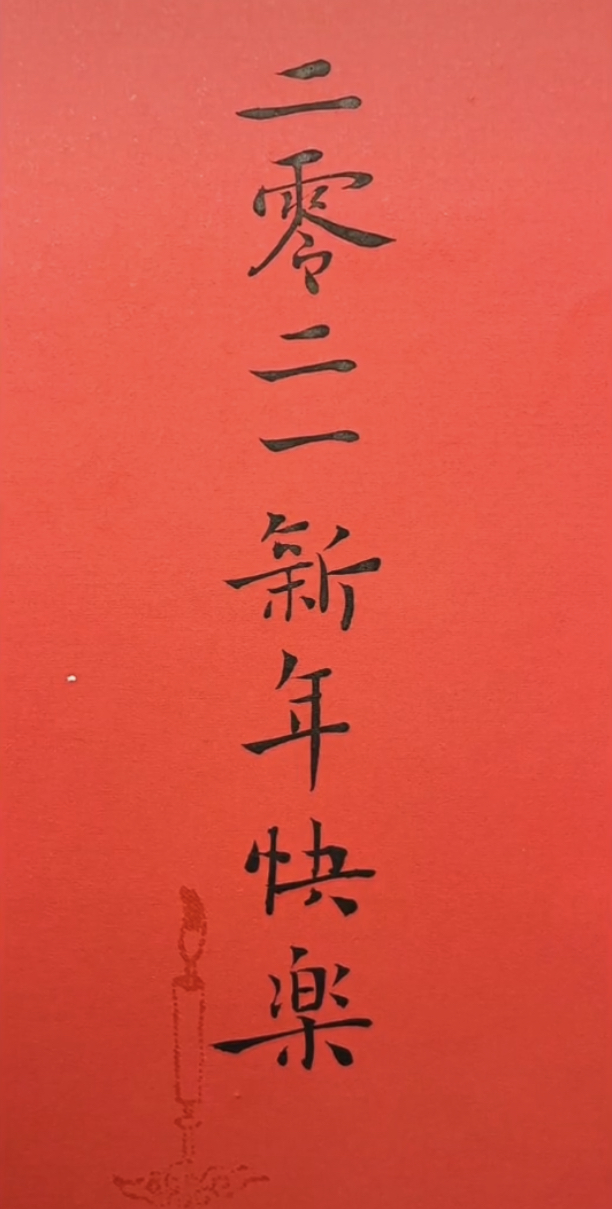 二零二一新年快楽